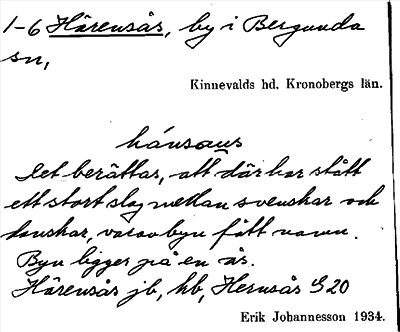 1-6 Härensås, by i Bergunda
sn,
Kinnevalds hd. Kronobergs län.
hánsaus
Det berättar, att där har stått
ett stort slag mellan svenskar och
danskar, varav byn fått namn.
Byn ligger på en ås.
Härensås jb, hb, Hernsås G20
Erik Johannesson 1934.